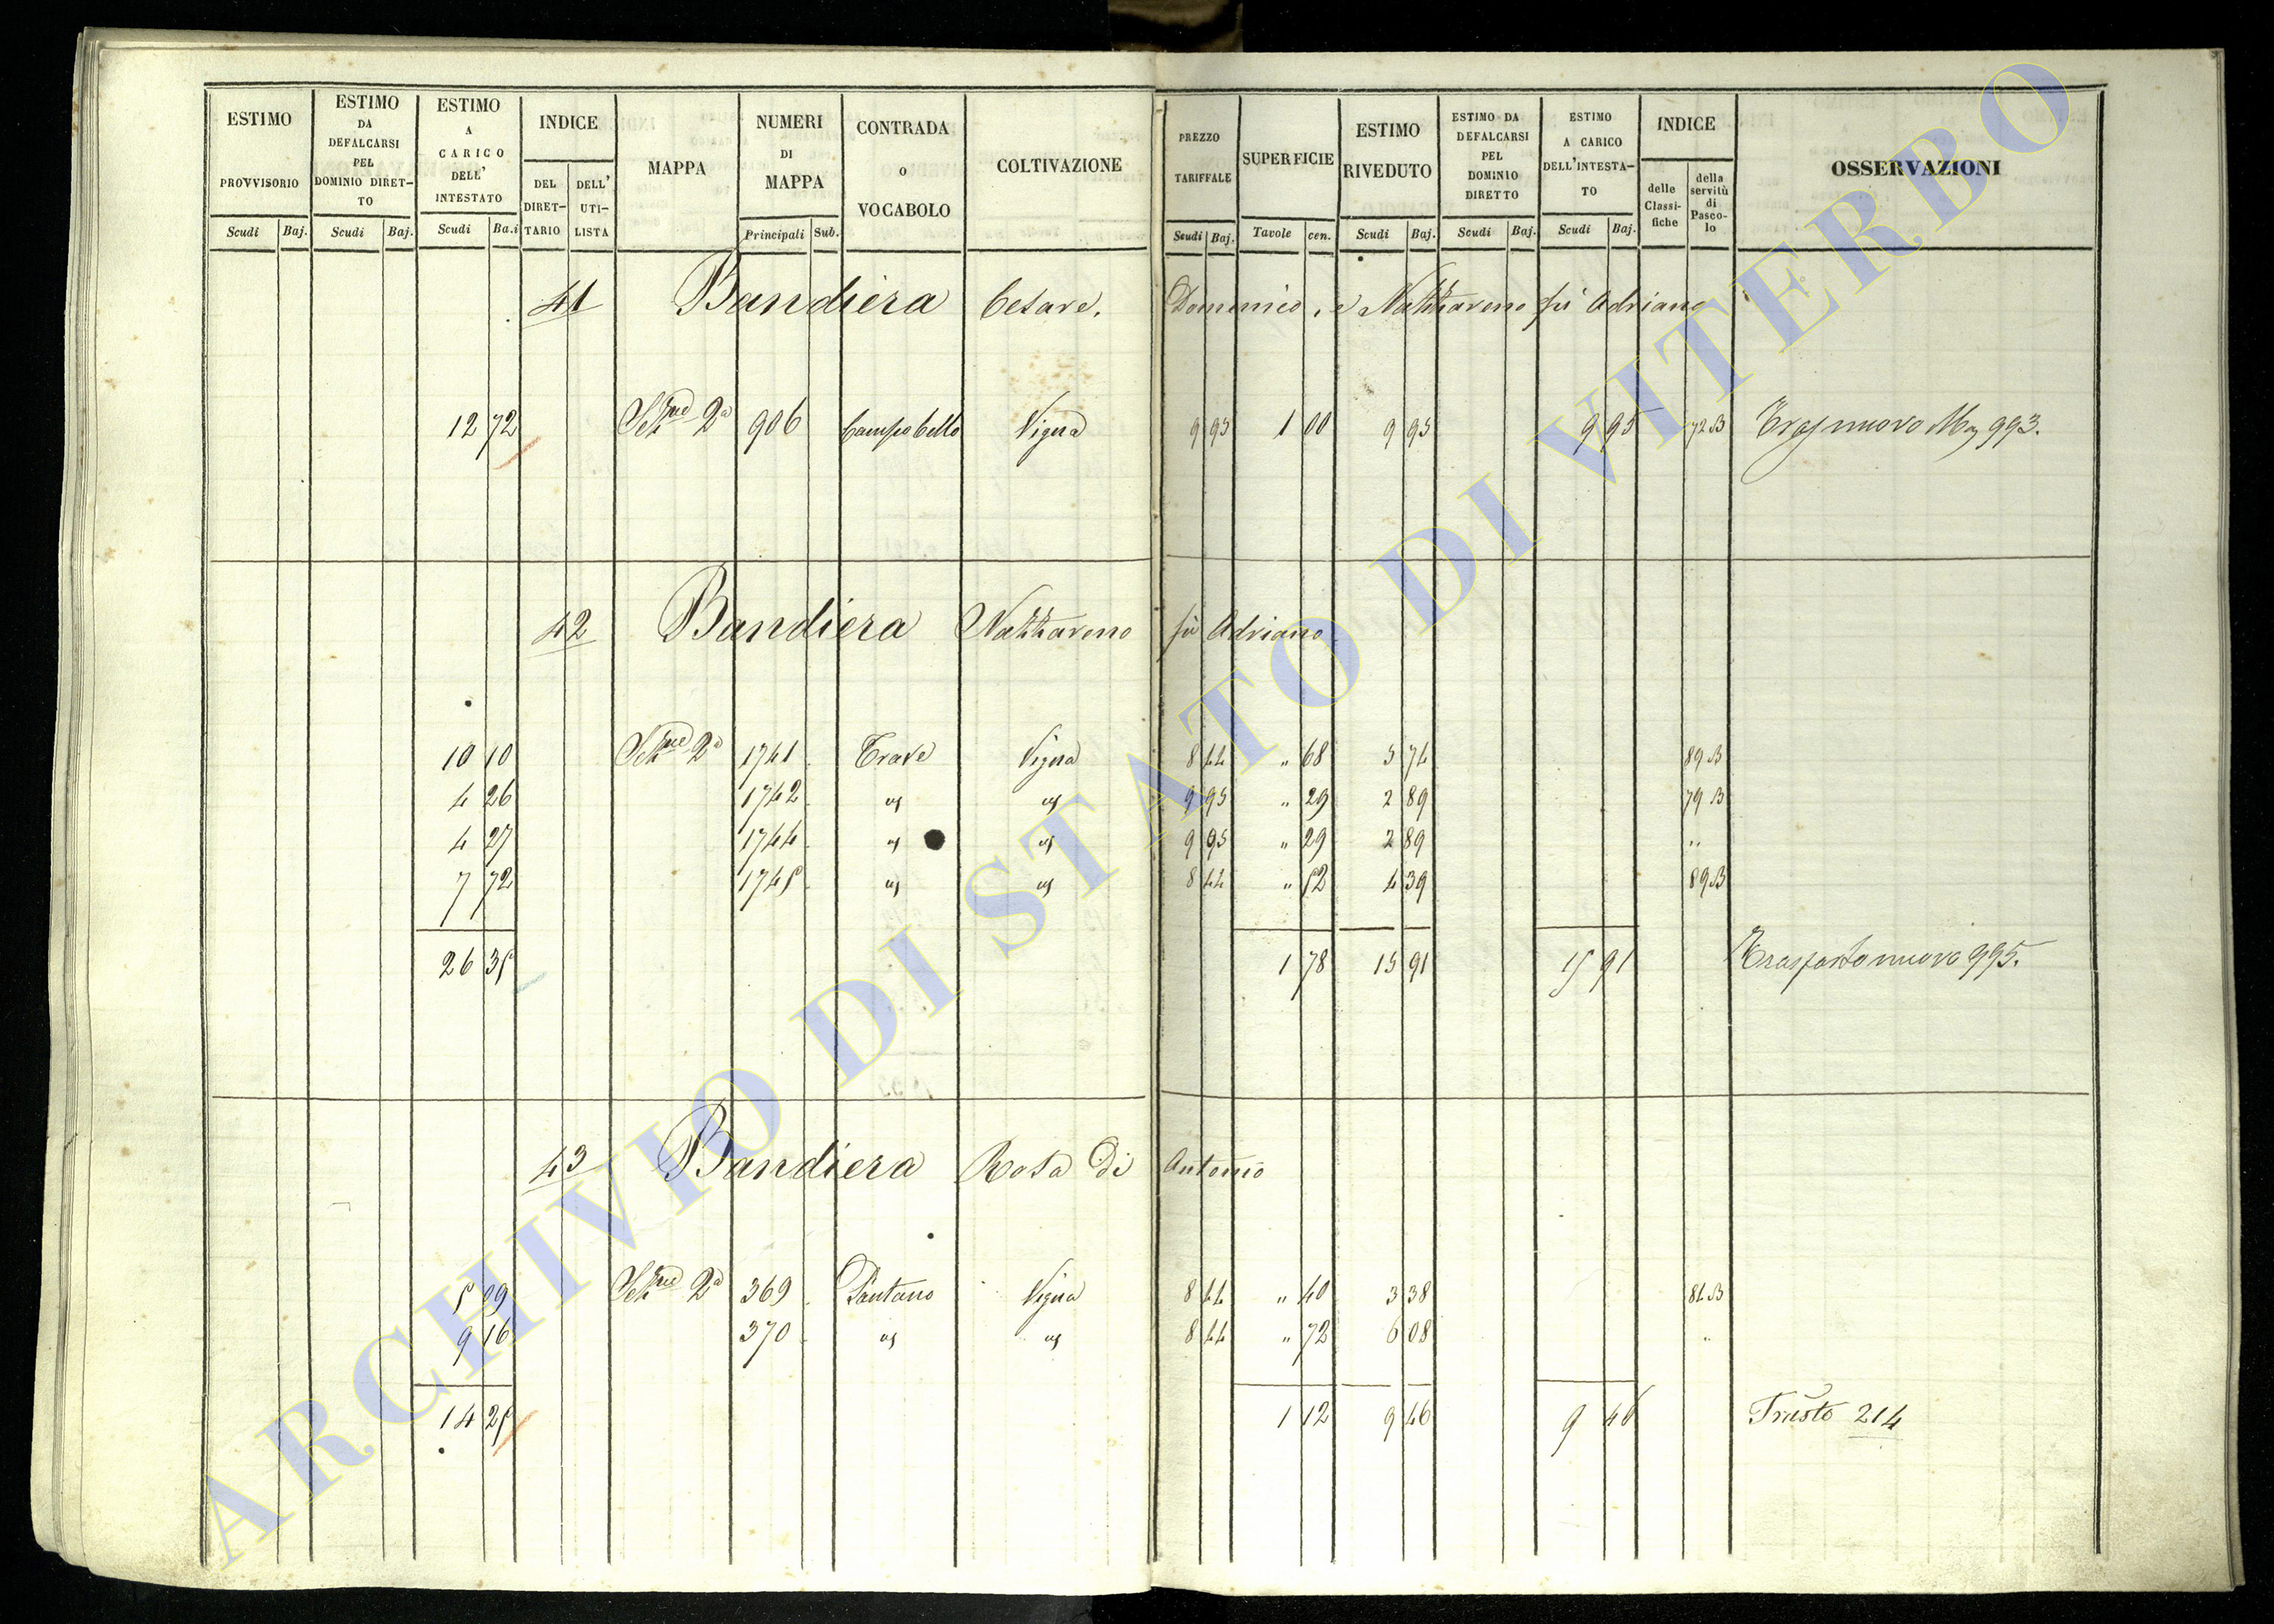 ESTIMO PROVVISORIO Scudi Baj.
ESTIMO DA DEFALCARSI PEL DOMINIO DIRET- TO Scudi Baj.
ESTIMO A CARICO DELL' INTESTATO Scudi Ba.i
INDICE DEL DIRET- TARIO DELL' UTI- LISTA
MAPPA
NUMERI DI MAPPA Principali Sub.
CONTRADA o VOCABOLO
COLTIVAZIONE
PREZZO TARIFFALE Scudi Baj.
SUPERFICIE Tavole cen.
ESTIMO RIVEDUTO Scudi Baj.
ESTIMO DA DEFALCARSI PEL DOMINIO DIRETTO Scudi Baj.
ESTIMO A CARICO DELL'INTESTA- TO Scudi Baj.
INDICE delle Classi- fiche della servitù di Pasco- lo
OSSERVAZIONI
41 Bandiera Cesare, Domenico, e Nazzareno fù Adriano
12 72 2a 906 Campo bello Vigna 9 95 1 00 9 95 9 95 72 B nuovo 993.
42 Bandiera Nazzareno fù Adriano
10 10 2a 1741 Trave Vigna 8 44 " 68 5 74 89 B
4 26 1742 9 95 " 29 2 89 79 B
4 27 1744 9 95 " 29 2 89 "
7 72 1745 8 44 " 52 4 39 89 B
26 35 1 78 15 91 15 91 Trasporto nuovo 995.
43 Bandiera Rosa di Antonio
5 09 2a 369 Pantano Vigna 8 44 " 40 3 38 84 B
9 16 370 8 44 " 72 6 08 "
14 25 1 12 9 46 9 46 214
ARCHIVIO DI STATO DI VITERBO